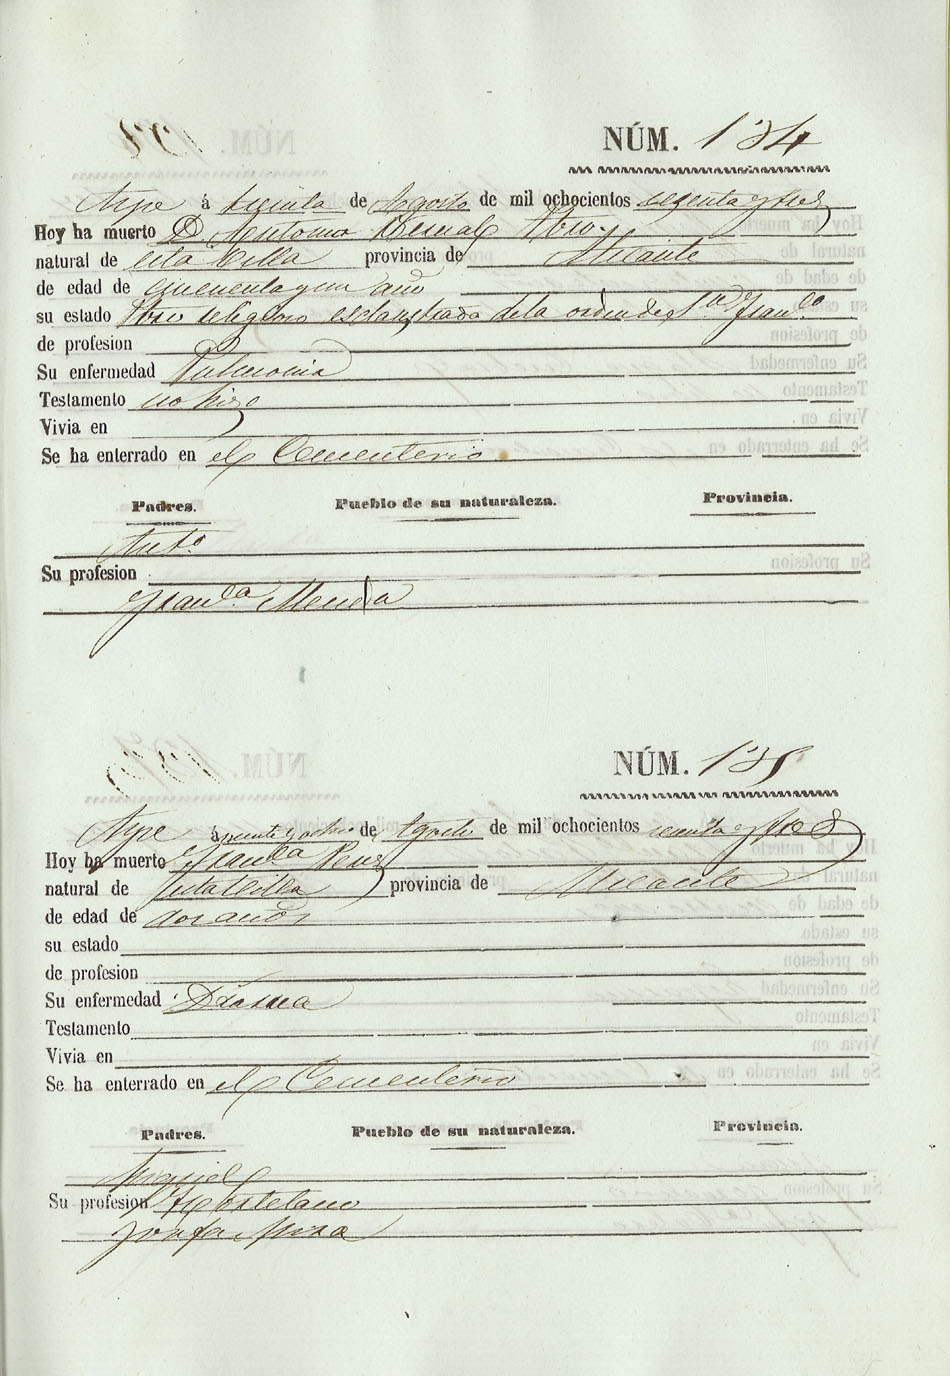 NÚM. 134
Aspe á treinta de Agosto de mil ochocientos sesenta y tres
Hoy ha muerto D. Antonio Pbro
natural de esta Villa provincia de Alicante
de edad de cincuenta y un año
su estado Pbro religioso esclaustrado de la orden de Sn Franco
de profesion
Su enfermedad Pulmonia
Testamento no hizo
Vivia en
Se ha enterrado en el Cementerio
Padres. Pueblo de su naturaleza. Provincia.
Anto
Su profesion
Franca
NÚM. 135
Aspe á veinte y ocho de Agosto de mil ochocientos sesenta y tres
Hoy ha muerto Franca Perez
natural de esta Villa provincia de Alicante
de edad de dos años
su estado
de profesion
Su enfermedad
Testamento
Vivia en
Se ha enterrado en el Cementerio
Padres. Pueblo de su naturaleza. Provincia.
Miguel
Su profesion Hortelano
Josefa Mira